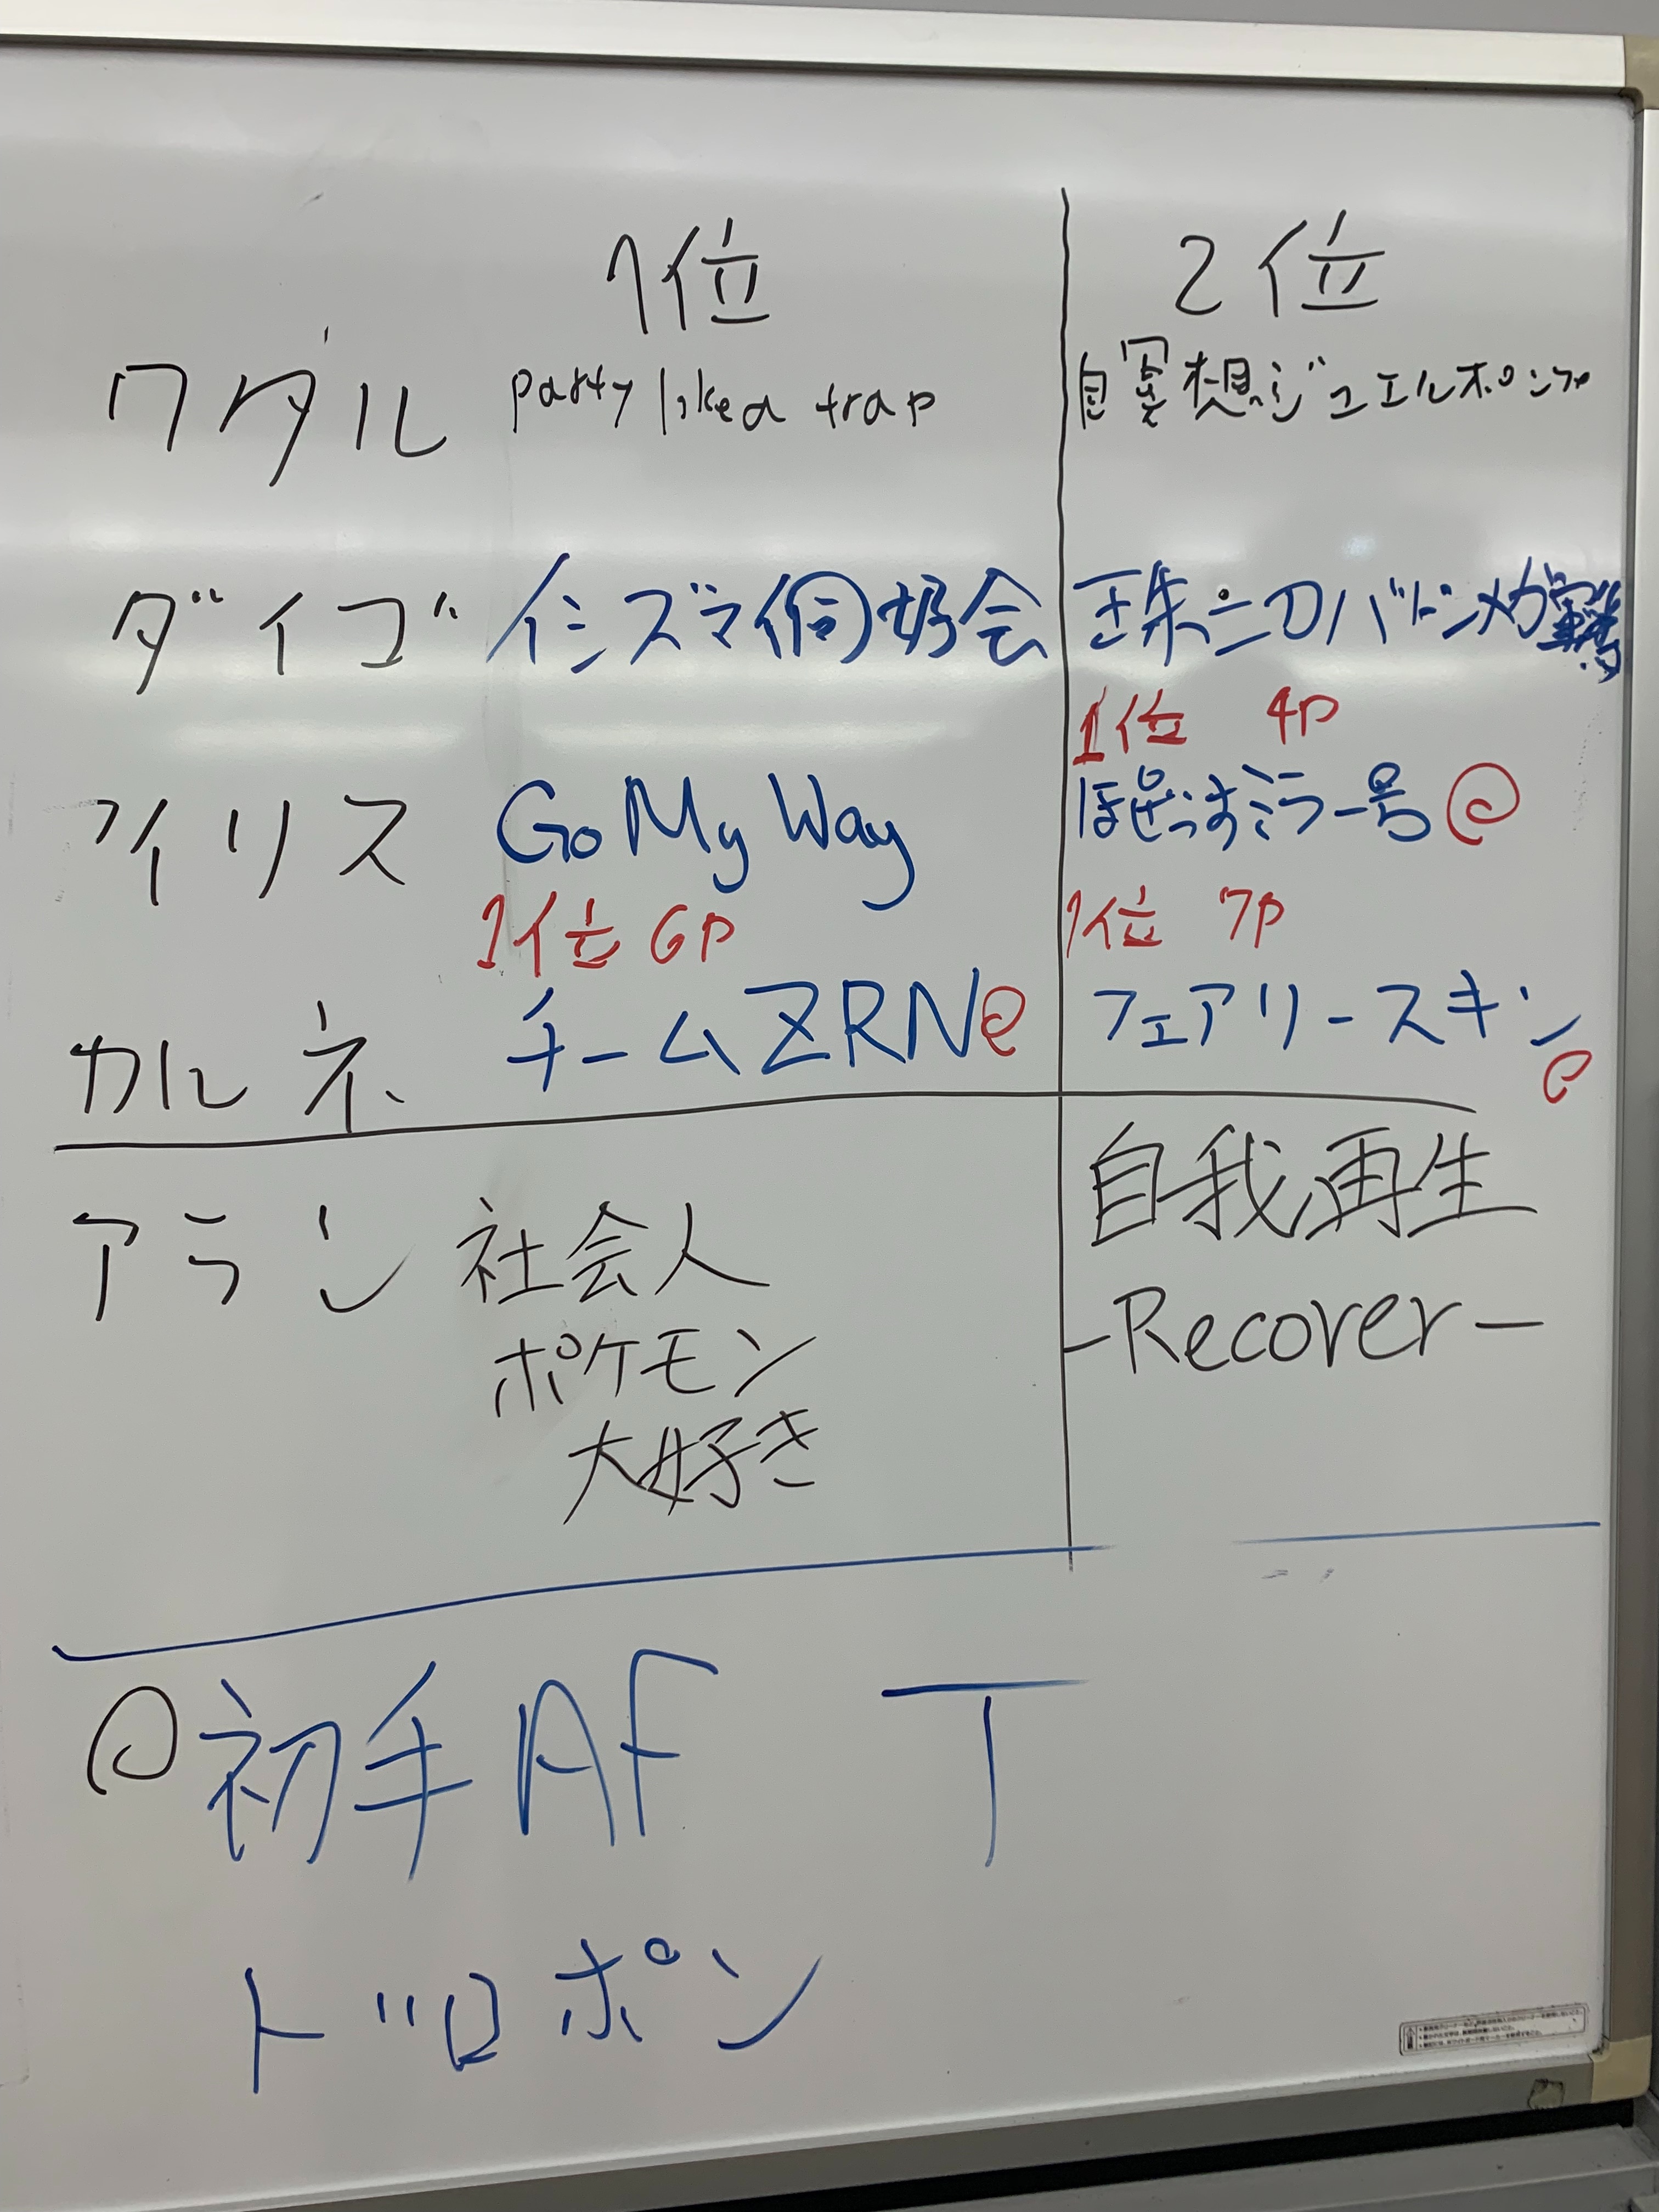 1位 2位
ワタル party like a trap 自冥想ジュエルポンプ
ダイゴ イシズマ同好会 珠二刀バトンメガ
1位 4P
アイリス Go My Way ほぜっすミラー号@
1位 6P 1位 7P
カルネ チームZRN@ フェアリースキン
@
アラン 社会人 自我再生
ポケモン -Recover-
大好き
@初手AF T
ドロポン